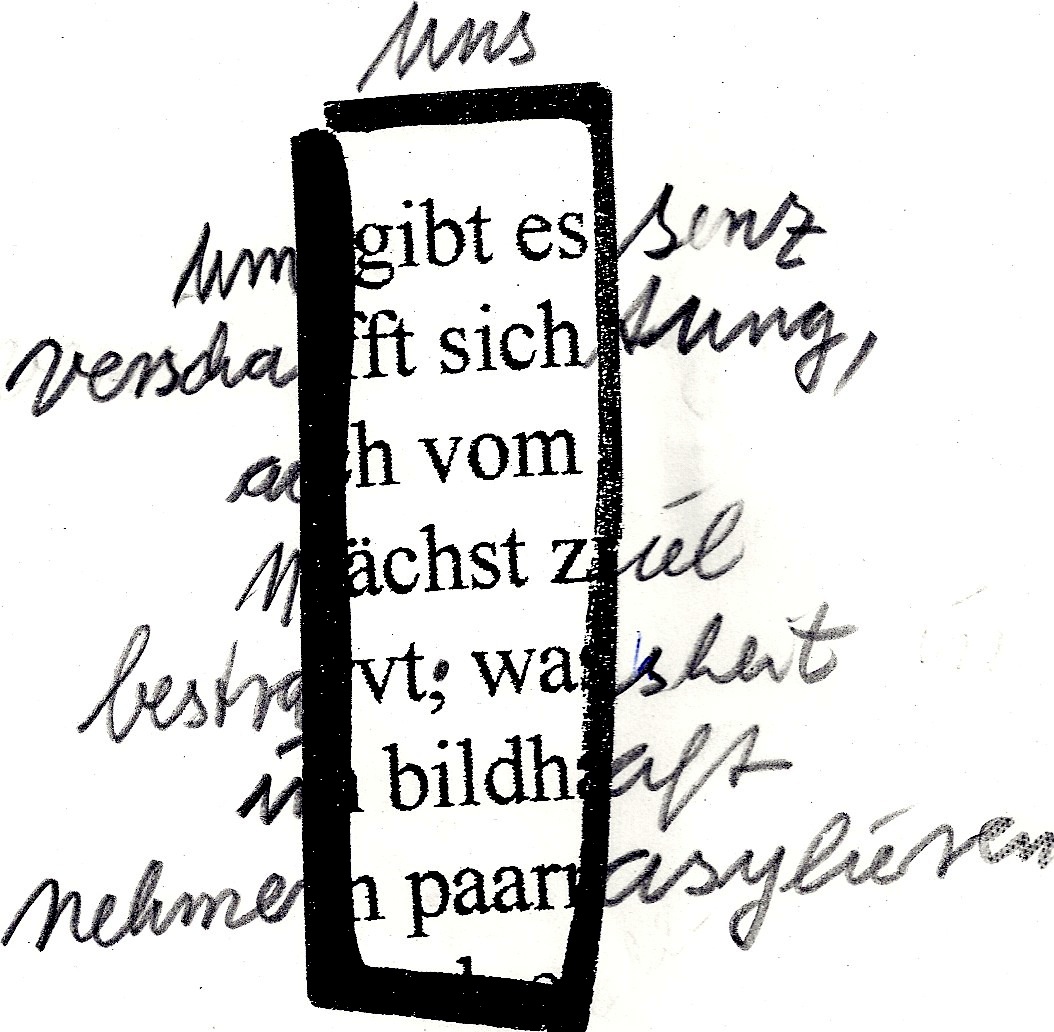 uns
umgibt essenz
verschafft sichtung,
auch vom
nächst ziel
bestravt; washeit
in bildhaft
nehmen paarrasylieren